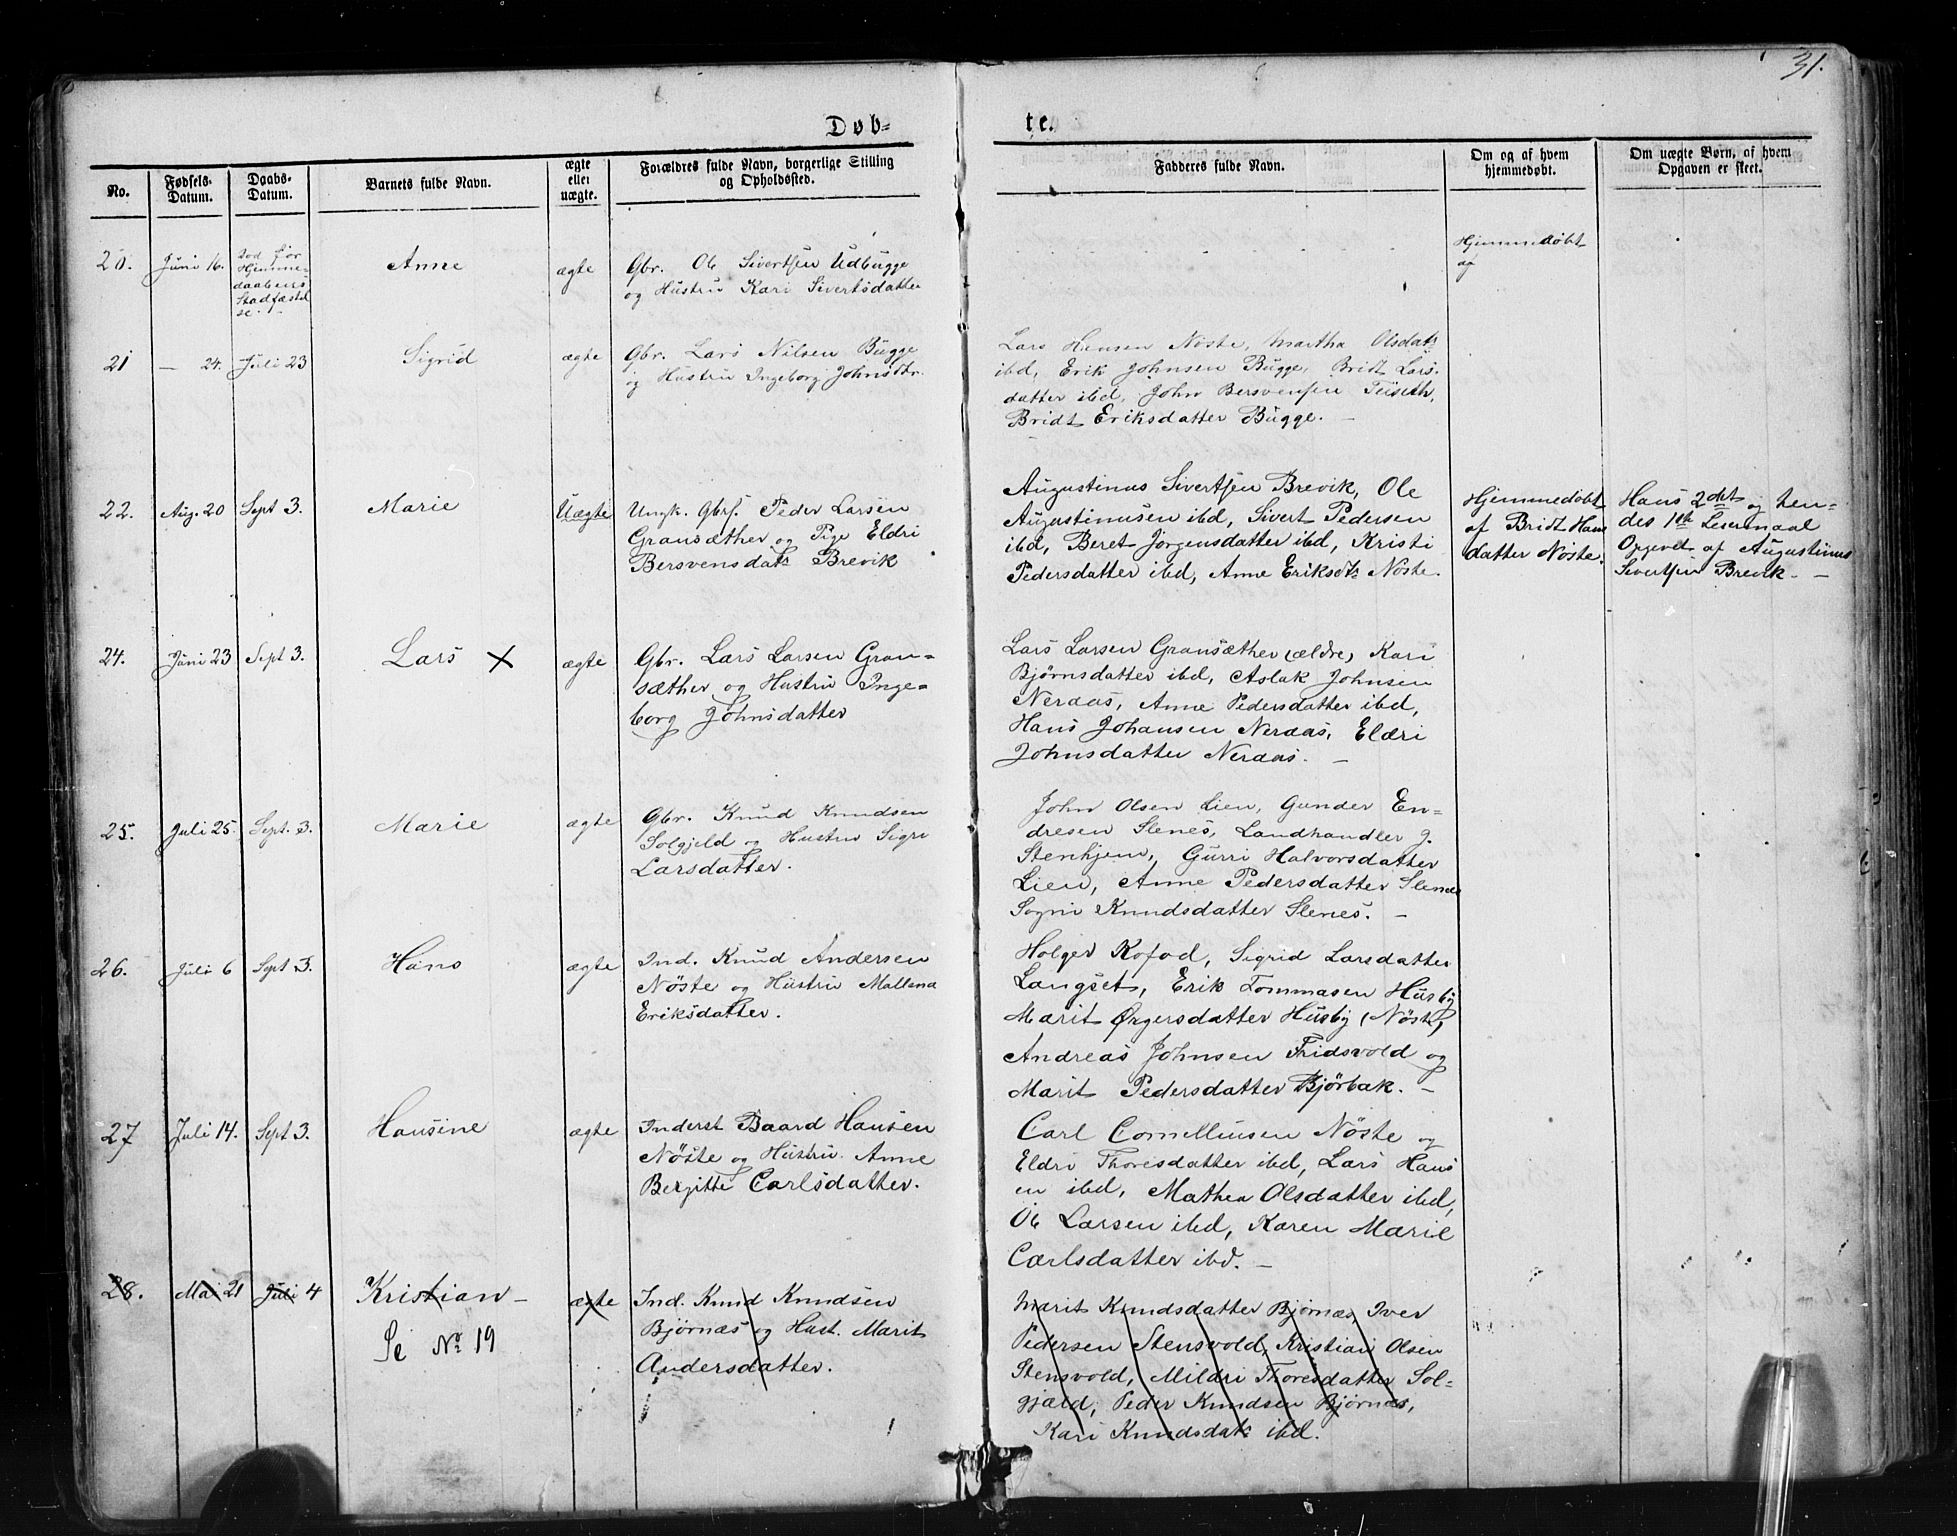 31.
Døb-
te.
No.
Fødsels-
Datum.
Daabs-
Datum.
Barnets fulde Navn.
ægte
eller
uægte.
Forældres fulde Navn, borgerlige Stilling
og Opholdssted.
Fadderes fulde Navn.
Om og af hvem
hjemmedøbt.
Om uægte Børn, af hvem
Opgaven er skeet.
20.
Juni 16.
Død før
Hjemme-
daabens
Stadfæstel
se.
Anne
ægte
Gbr. Ole Sivertsen Udbugge
og Hustru Kari Sivertsdatter
Hjemmedøbt
af
21
— 24.
Juli 23
Sigrid
ægte
Gbr. Lars Nilsen Bugge
og Hustru Ingeborg Johnsdtr.
Lars Hansen Nøste, Martha Olsdatr
ibd, Erik Johnsen Bugge, Bridt Lars-
datter ibd, John Bersvensen Tüseth,
Bridt Eriksdatter Bugge. —
22.
Aug. 20
Sept 3.
Marie
Uægte
Ungk. Gbrs. Peder Larsen
Gransæther og Pige Eldri
Bersvensdatr Brevik
Augustinus Sivertsen Brevik, Ole
Augustinusen ibd, Sivert Pedersen
ibd, Beret Jørgensdatter ibd, Kristi
Pedersdatter ibd, Anne Eriksdtr Nøste.
Hjemmedøbt
af Bridt Hans
datter Nøste.
Hans 2det og hen-
des 1ste Leiermaal
Opgivet af Augustinus
Sivertsen Brevik. —
24.
Juni 23
Sept 3.
Lars X
ægte
Gbr. Lars Larsen Gran-
sæther og Hustru Inge-
borg Johnsdatter
Lars Larsen Gransæther (ældre) Kari
Bjørnsdatter ibd, Aslak Johnsen
Neraas, Anne Pedersdatter ibd,
Hans Johansen Neraas, Eldri
Johnsdatter Neraas. —
25.
Juli 25.
Sept. 3.
Marie
ægte
Gbr. Knud Knudsen
Solgjeld og Hustru Sigri
Larsdatter.
John Olsen Lien, Gunder En-
dresen Slenes, Landhandler J.
Stenhjem, Gurri Halvorsdatter
Lien, Anne Pedersdatter Slenes
Sogni Knudsdatter Slenes. —
26.
Juli 6
Sept 3.
Hans
ægte
Ind. Knud Andersen
Nøste og Hustru Mallena
Eriksdatter.
Holger Kofod, Sigrid Larsdatter
Langset, Erik Tommasen Husby
Marit Ørgersdatter Husby (Nøste)
Andreas Johnsen Fridsvold og
Marit Pedersdatter Bjørbak. —
27
Juli 14.
Sept 3.
Hansine
ægte
Inderst Baard Hansen
Nøste og Hustru Anne
Bergitte Carlsdatter.
Carl Cornelliusen Nøste og
Eldri Thoresdatter ibd, Lars Hans
en ibd, Mathea Olsdatter ibd,
Ole Larsen ibd, Karen Marie
Carlsdatter ibd. —
28.
Mai 21
Juli 4
Kristian —
Se No 19
ægte
Ind. Knud Knudsen
Bjørnæs og Hust. Marit
Andersdatter.
Marit Knudsdatter Bjørnæs, Iver
Pedersen Stensvold, Kristian Olsen
Stensvold, Mildri Thoresdatter Sol-
gjæld, Peder Knudsen Bjørnæs,
Kari Knudsdatr ibd.